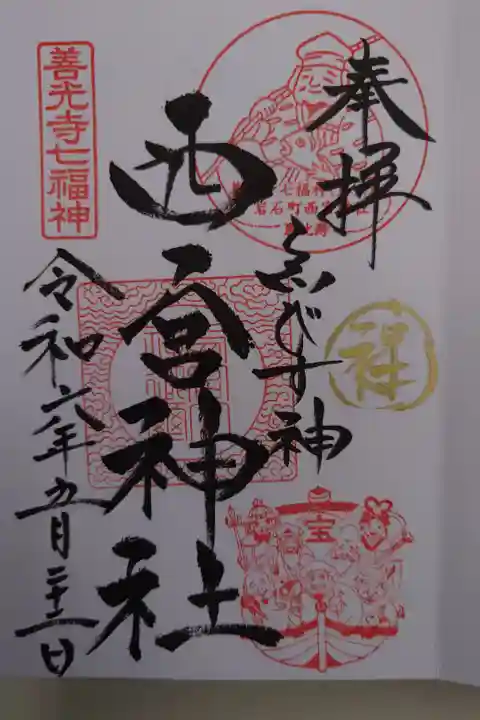 奉拝
七福神
岩石町西宮神社
恵比寿
ゑびす神
西宮神社
善光寺七福神
令和六年五月二十二日
宝